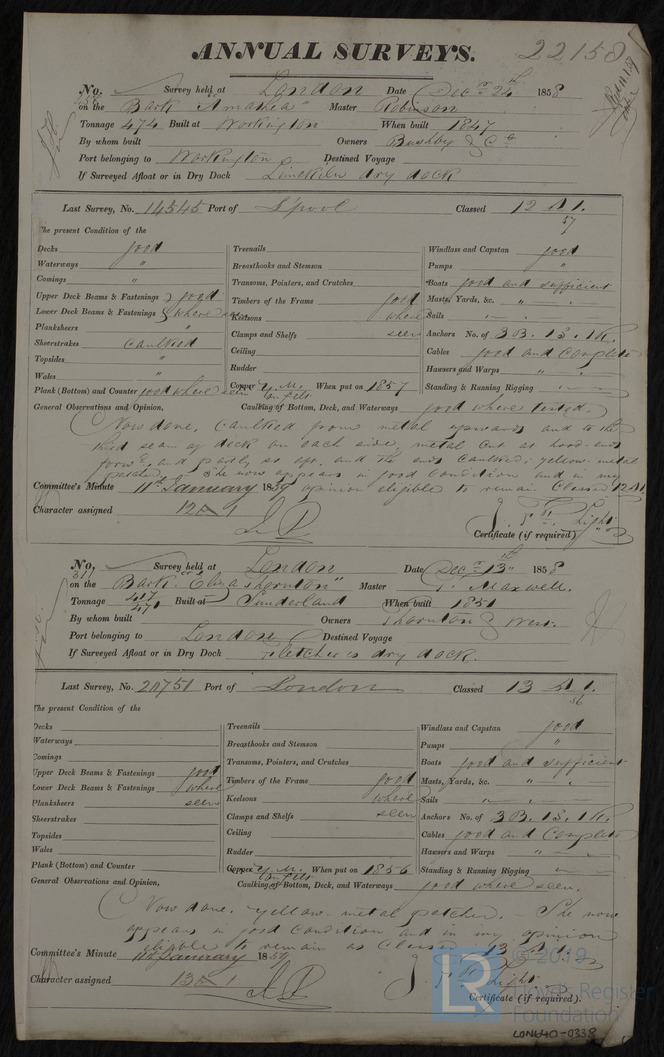 ANNUAL SURVEYS. 22158
No. Survey held at London Date Decr 24th 1858
on the Bark "Amanda" Master Robinson
Tonnage 474 Built at Workington When built 1847
By whom built Owners Bushby & Co
Port belonging to Workington Destined Voyage
If Surveyed Afloat or in Dry Dock Limekiln dry dock
Last Survey, No. 14545 Port of L'pool Classed 12 A 1.
57
The present Condition of the
Decks good
Waterways "
Comings "
Upper Deck Beams & Fastenings good
Lower Deck Beams & Fastenings where
Planksheers "
Sheerstrakes Caulked
Topsides "
Wales "
Plank (Bottom) and Counter good where seen
Treenails
Breasthooks and Stemson
Transoms, Pointers, and Crutches
Timbers of the Frame good
Keelsons where
Clamps and Shelfs seen
Ceiling
Rudder
Copper Y. M. on felt When put on 1857
Windlass and Capstan good
Pumps "
Boats good and sufficient
Masts, Yards, &c. " "
Sails " "
Anchors No. of 3 B. 1 S. 1 K.
Cables good and Complete
Hawsers and Warps " "
Standing & Running Rigging " "
General Observations and Opinion, Caulking of Bottom, Deck, and Waterways good where tested.
Now done, Caulked from metal upwards and to the
third seam of deck on each side, metal cut at hood-ends
forwd, and partly so aft. and the ends caulked; yellow metal
patched. She now appears in good Condition and in my
Committee's Minute 11th January 1859 opinion eligible to remain Classed 12 A 1.
Character assigned 12 A 1
Light
Certificate (if required)
No. Survey held at London Date Decr 13th 1858
311
on the Bark "Eliza Thornton" Master Maxwell.
Tonnage 417/471 Built at Sunderland When built 1851
By whom built Owners Thornton & West
Port belonging to London Destined Voyage
If Surveyed Afloat or in Dry Dock Fletcher's dry dock.
Last Survey, No. 20751 Port of London Classed 13 A 1.
56
The present Condition of the
Decks
Waterways
Comings
Upper Deck Beams & Fastenings good
Lower Deck Beams & Fastenings where
Planksheers seen
Sheerstrakes
Topsides
Wales
Plank (Bottom) and Counter
Treenails
Breasthooks and Stemson
Transoms, Pointers, and Crutches
Timbers of the Frame good
Keelsons where
Clamps and Shelfs seen
Ceiling
Rudder
Copper Y. M. on felt When put on 1856
Windlass and Capstan good
Pumps "
Boats good and sufficient
Masts, Yards, &c. " "
Sails " "
Anchors No. of 3 B. 1 S. 1 K.
Cables good and Complete
Hawsers and Warps " "
Standing & Running Rigging " "
General Observations and Opinion, Caulking of Bottom, Deck, and Waterways good where seen.
Now done. Yellow metal patched. She now
appears in good Condition and in my opinion
eligible to remain as Classed 13 A 1.
Committee's Minute 11th January 1859
Character assigned 13 A 1
Light
Certificate (if required).
© 2019
LR Lloyd's Register
Foundation
LON640-0338